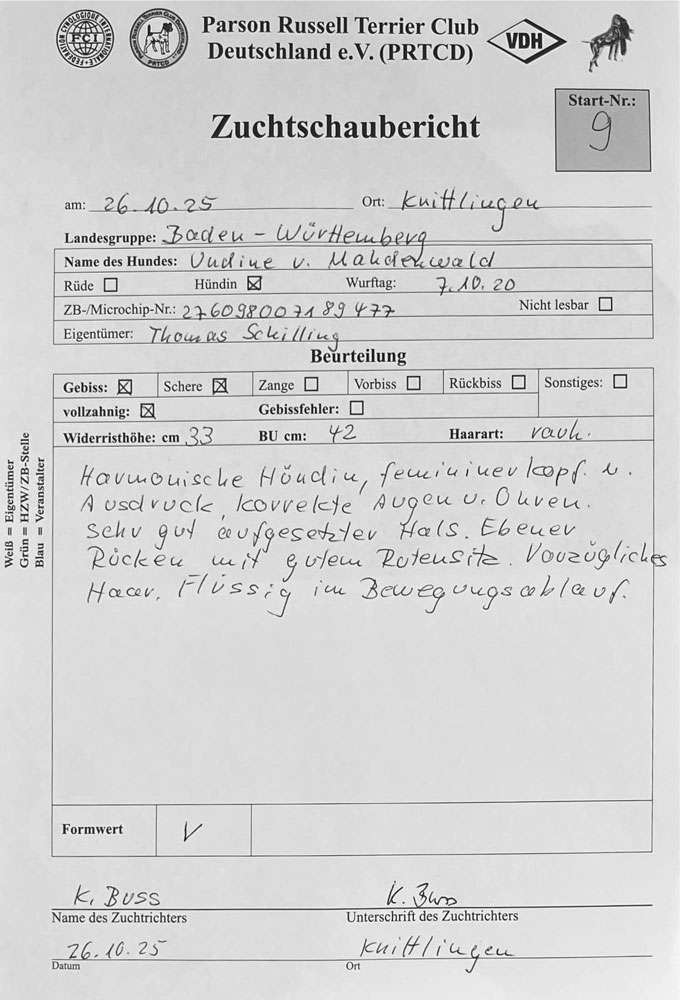 Parson Russell Terrier Club
Deutschland e.V. (PRTCD)
FEDERATION CYNOLOGIQUE INTERNATIONALE
FCI
PRTCD
VDH
Start-Nr.:
9
Zuchtschaubericht
am: 26.10.25 Ort: Knittlingen
Landesgruppe: Baden-Württemberg
Name des Hundes: Undine v. Mahdenwald
Rüde ☐ Hündin ☒ Wurftag: 7.10.20
ZB-/Microchip-Nr.: 276098007189477 Nicht lesbar ☐
Eigentümer: Thomas Schilling
Beurteilung
Gebiss: ☒ Schere ☒ Zange ☐ Vorbiss ☐ Rückbiss ☐ Sonstiges: ☐
vollzahnig: ☒ Gebissfehler: ☐
Widerristhöhe: cm 33 BU cm: 42 Haarart: rauh.
Harmonische Hündin, femininer Kopf u.
Ausdruck, korrekte Augen u. Ohren.
Sehr gut aufgesetzter Hals. Ebener
Rücken mit gutem Rutensitz. Vorzügliches
Haar. Flüssig im Bewegungsablauf.
Weiß = Eigentümer
Grün = HZW/ZB-Stelle
Blau = Veranstalter
Formwert V
K. Buss K. Buss
Name des Zuchtrichters Unterschrift des Zuchtrichters
26.10.25 Knittlingen
Datum Ort